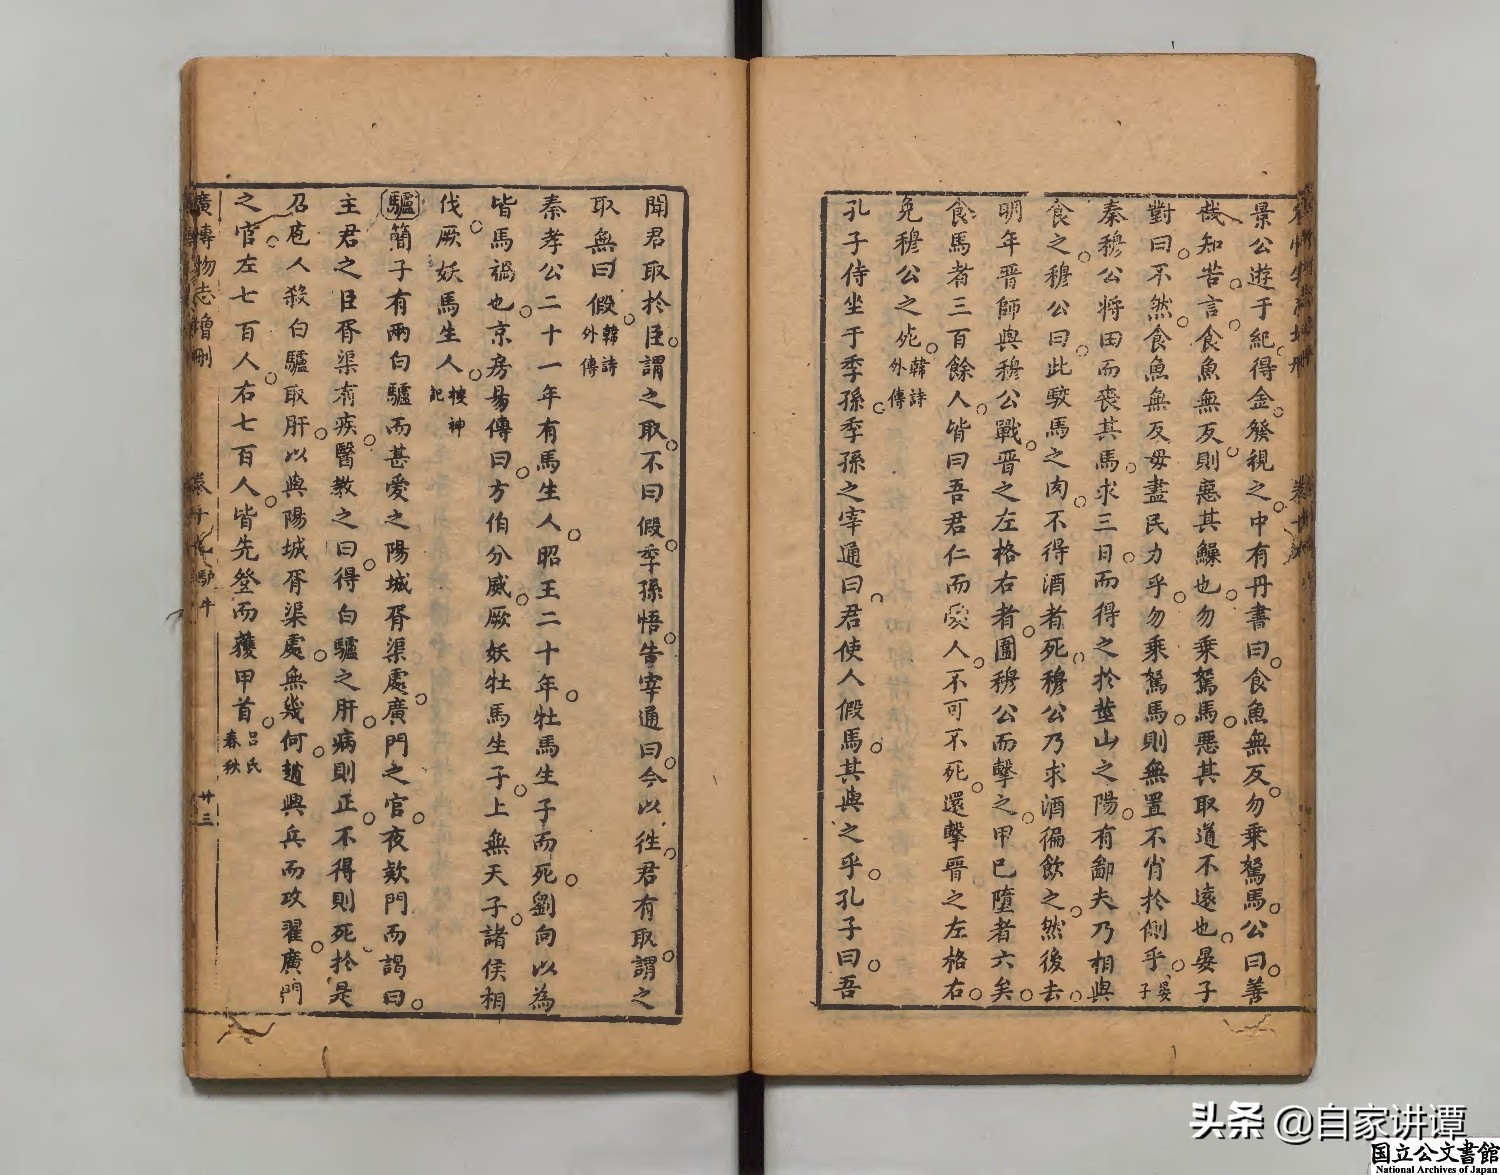 景公遊于紀得金發視之中有丹書曰食魚無反勿乘駑馬公曰善
哉知苦言食魚無反則惡其鱢也勿乘駑馬惡其取道不遠也晏子
對曰不然食魚無反毋盡民力乎勿乘駑馬則無置不肖於側乎晏子
秦穆公將田而喪其馬求三日而得之於莖山之陽有鄙夫乃相與
食之穆公曰此駮馬之肉不得酒者死穆公乃求酒徧飲之然後去
明年晋師與穆公戰晋之左格右者圍穆公而擊之甲已墮者六矣
食馬者三百餘人皆曰吾君仁而愛人不可不死還擊晋之左格右
免穆公之死韓詩外傳
孔子侍坐于季孫季孫之宰通曰君使人假馬其與之乎孔子曰吾
聞君取於臣謂之取不曰假季孫悟告宰通曰今以徃君有取謂之
取無曰假韓詩外傳
秦孝公二十一年有馬生人昭王二十年牡馬生子而死劉向以為
皆馬禍也京房易傳曰方伯分威厥妖牡馬生子上無天子諸侯相
伐厥妖馬生人搜神記
驢簡子有兩白驢而甚愛之陽城胥渠處廣門之官夜欵門而謁曰
主君之臣胥渠有疾醫教之曰得白驢之肝病則正不得則死於是
召庖人殺白驢取肝以與陽城胥渠處無幾何趙興兵而攻翟廣門
之官左七百人右七百人皆先登而獲甲首呂氏春秋
廣博物志 卷 牛 廿三
头条 @自家讲谭
国立公文書館
National Archives of Japan